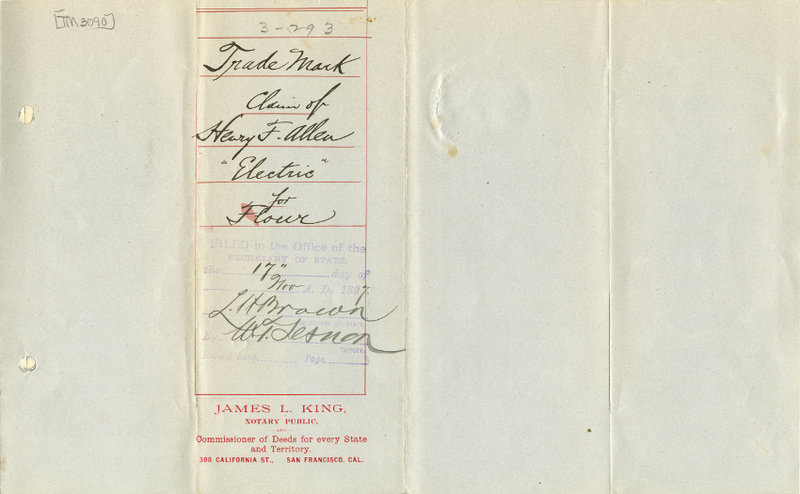 TM3090
3-293
Trade Mark
Claim of
Henry F. Allen
"Electric"
for
Flour
FILED in the Office of the
SECRETARY OF STATE,
the 17" day of
Nov A. D. 1897.
L. H. Brown
SECRETARY OF STATE.
By
DEPUTY.
Record Page,
JAMES L. KING,
NOTARY PUBLIC,
AND
Commissioner of Deeds for every State
and Territory,
308 CALIFORNIA ST., SAN FRANCISCO, CAL.